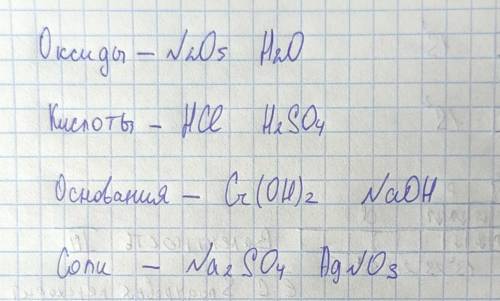 Оксиды – N2O5 H2O
Кислоты – HCl H2SO4
Основания – Cr(OH)2 NaOH
Соли – Na2SO4 AgNO3